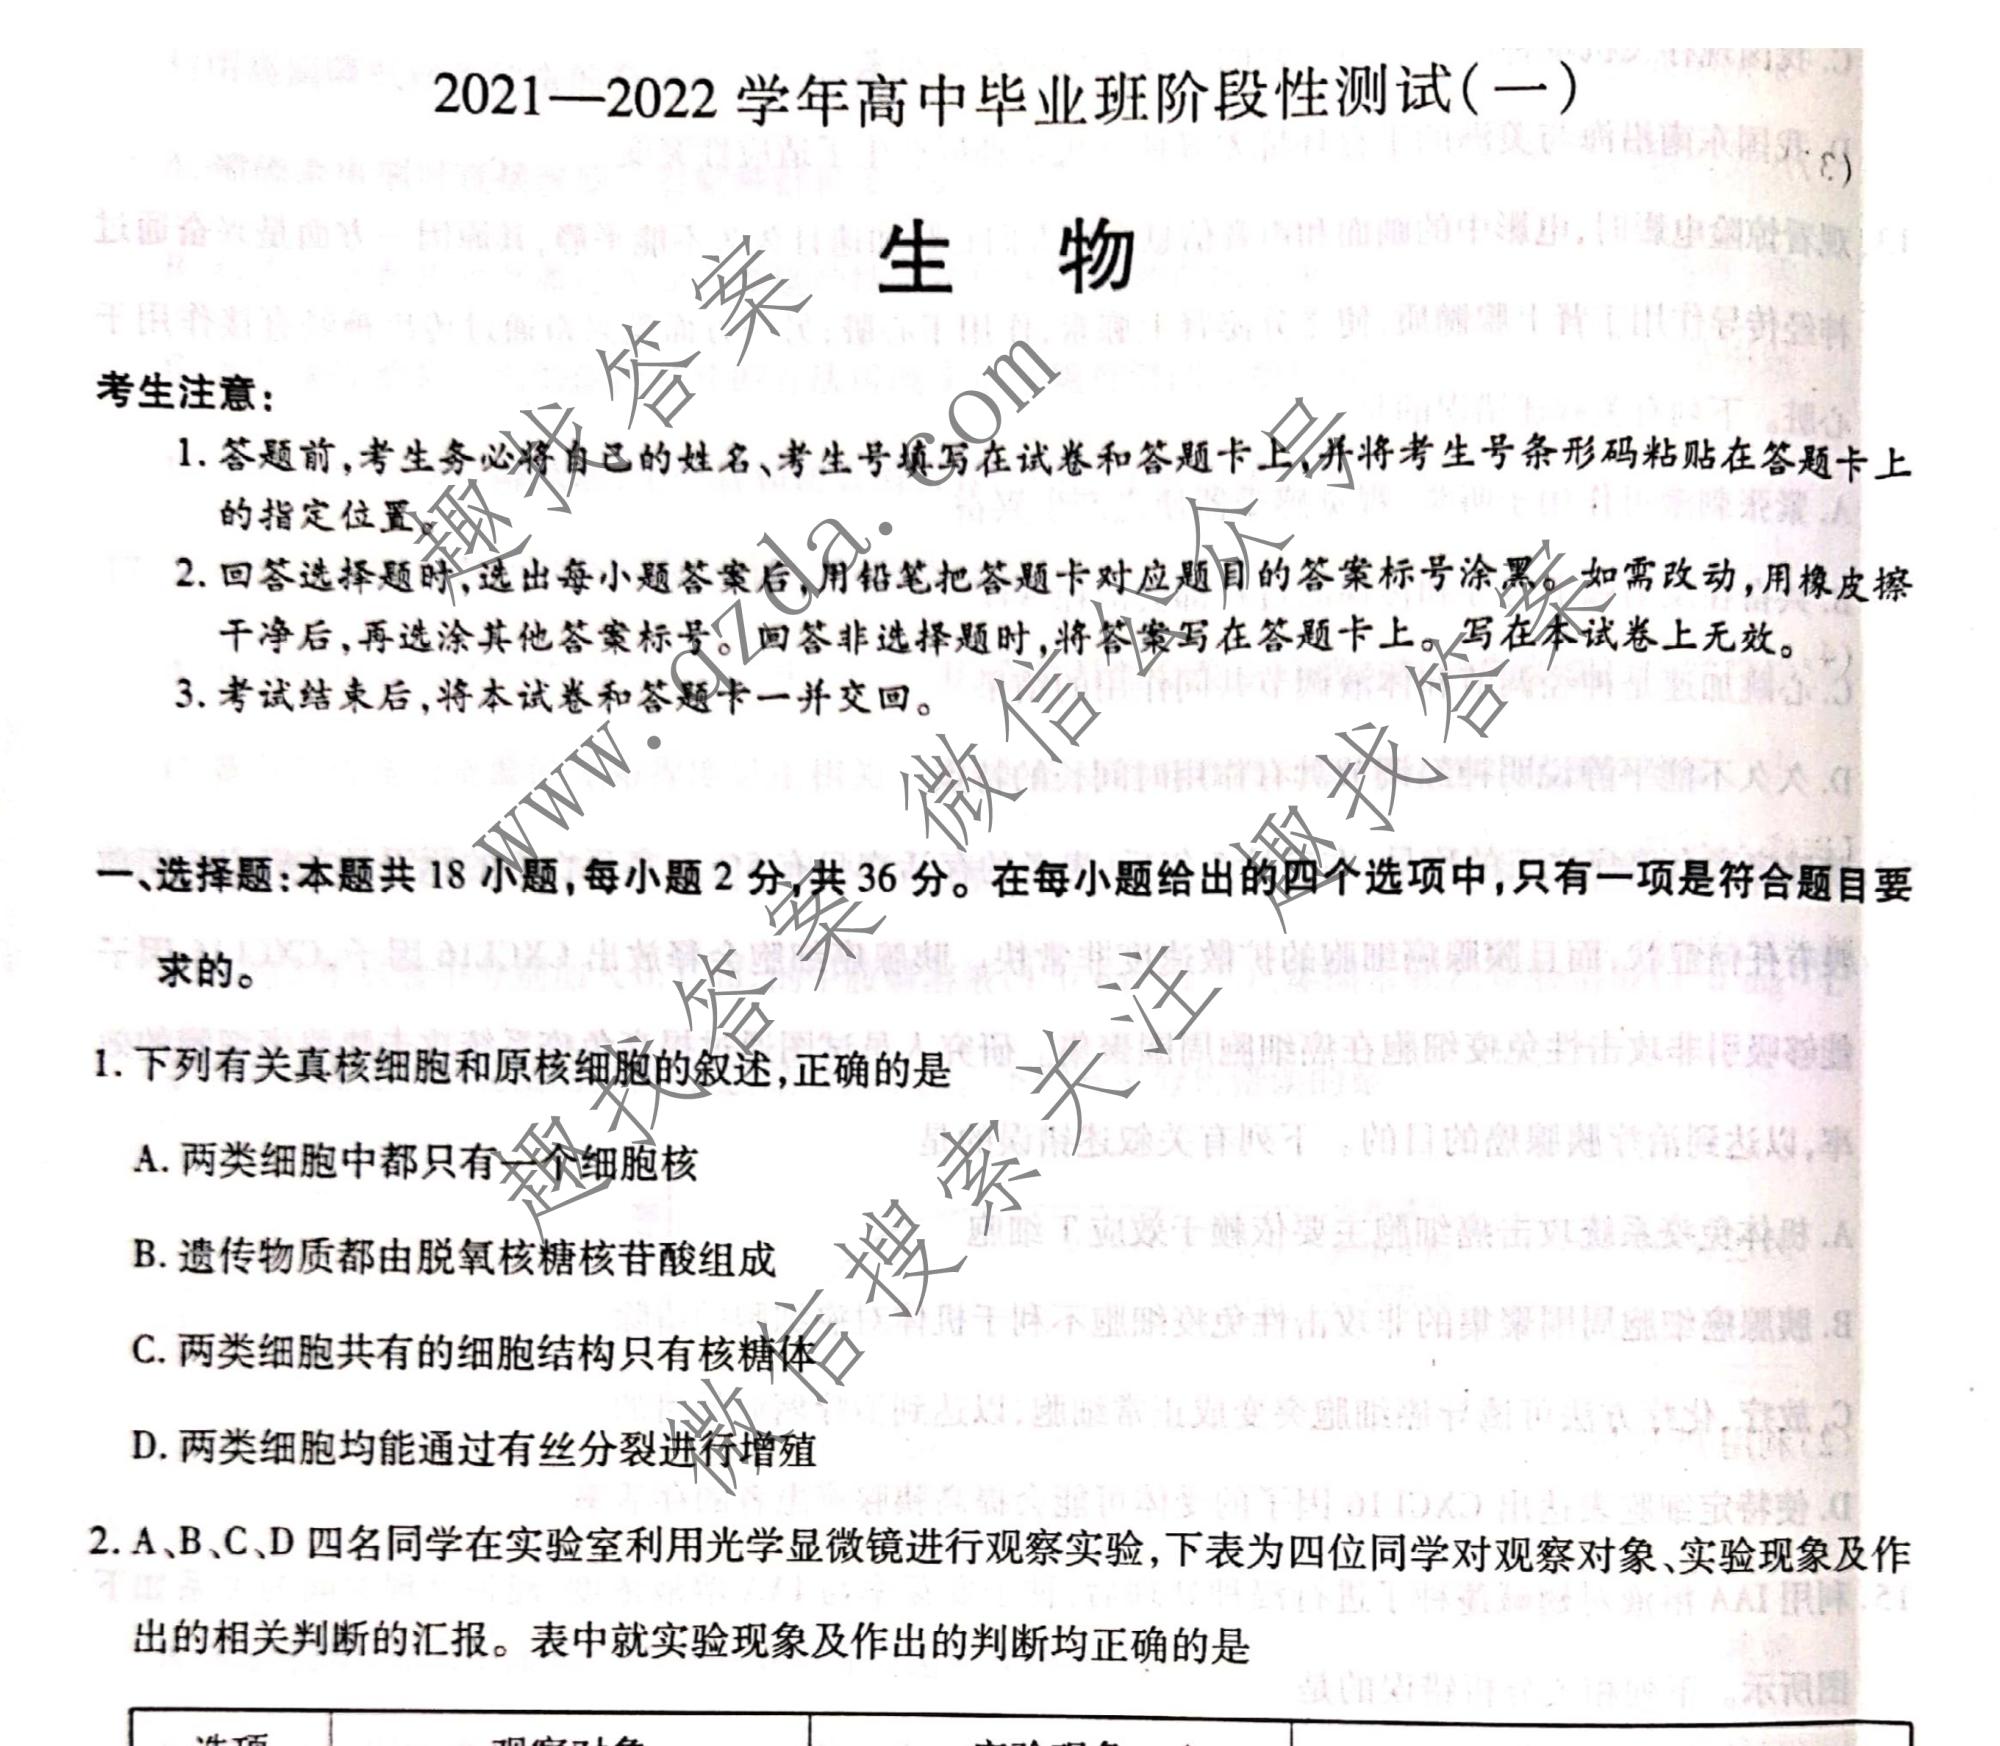 2021—2022 学年高中毕业班阶段性测试(一)
生 物
考生注意:
1. 答题前,考生务必将自己的姓名、考生号填写在试卷和答题卡上,并将考生号条形码粘贴在答题卡上
的指定位置。
2. 回答选择题时,选出每小题答案后,用铅笔把答题卡对应题目的答案标号涂黑。如需改动,用橡皮擦
干净后,再选涂其他答案标号。回答非选择题时,将答案写在答题卡上。写在本试卷上无效。
3. 考试结束后,将本试卷和答题卡一并交回。
一、选择题:本题共 18 小题,每小题 2 分,共 36 分。在每小题给出的四个选项中,只有一项是符合题目要
求的。
1. 下列有关真核细胞和原核细胞的叙述,正确的是
A. 两类细胞中都只有一个细胞核
B. 遗传物质都由脱氧核糖核苷酸组成
C. 两类细胞共有的细胞结构只有核糖体
D. 两类细胞均能通过有丝分裂进行增殖
2. A、B、C、D 四名同学在实验室利用光学显微镜进行观察实验,下表为四位同学对观察对象、实验现象及作
出的相关判断的汇报。表中就实验现象及作出的判断均正确的是
选项 观察对象 实验现象
趣找答案
www.qzda.com
趣找答案微信公众号
微信搜索关注 趣找答案